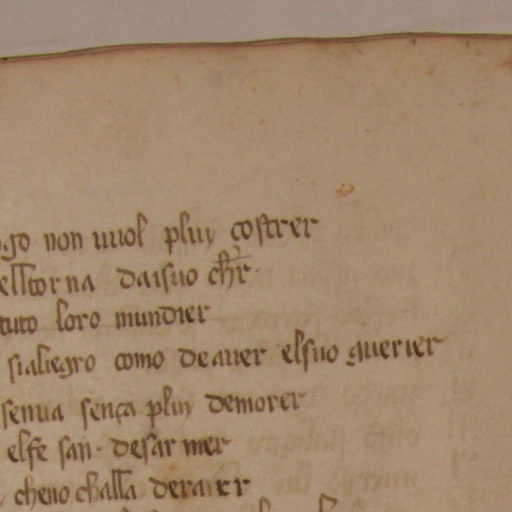 go non uuol pluy çostrer
elltorna daisuo chr̄
tuto loro mundier
sialiegro como deauer elsuo guerier
senua sença pluy demorer
elfe san desarmer
cheno challa derauer